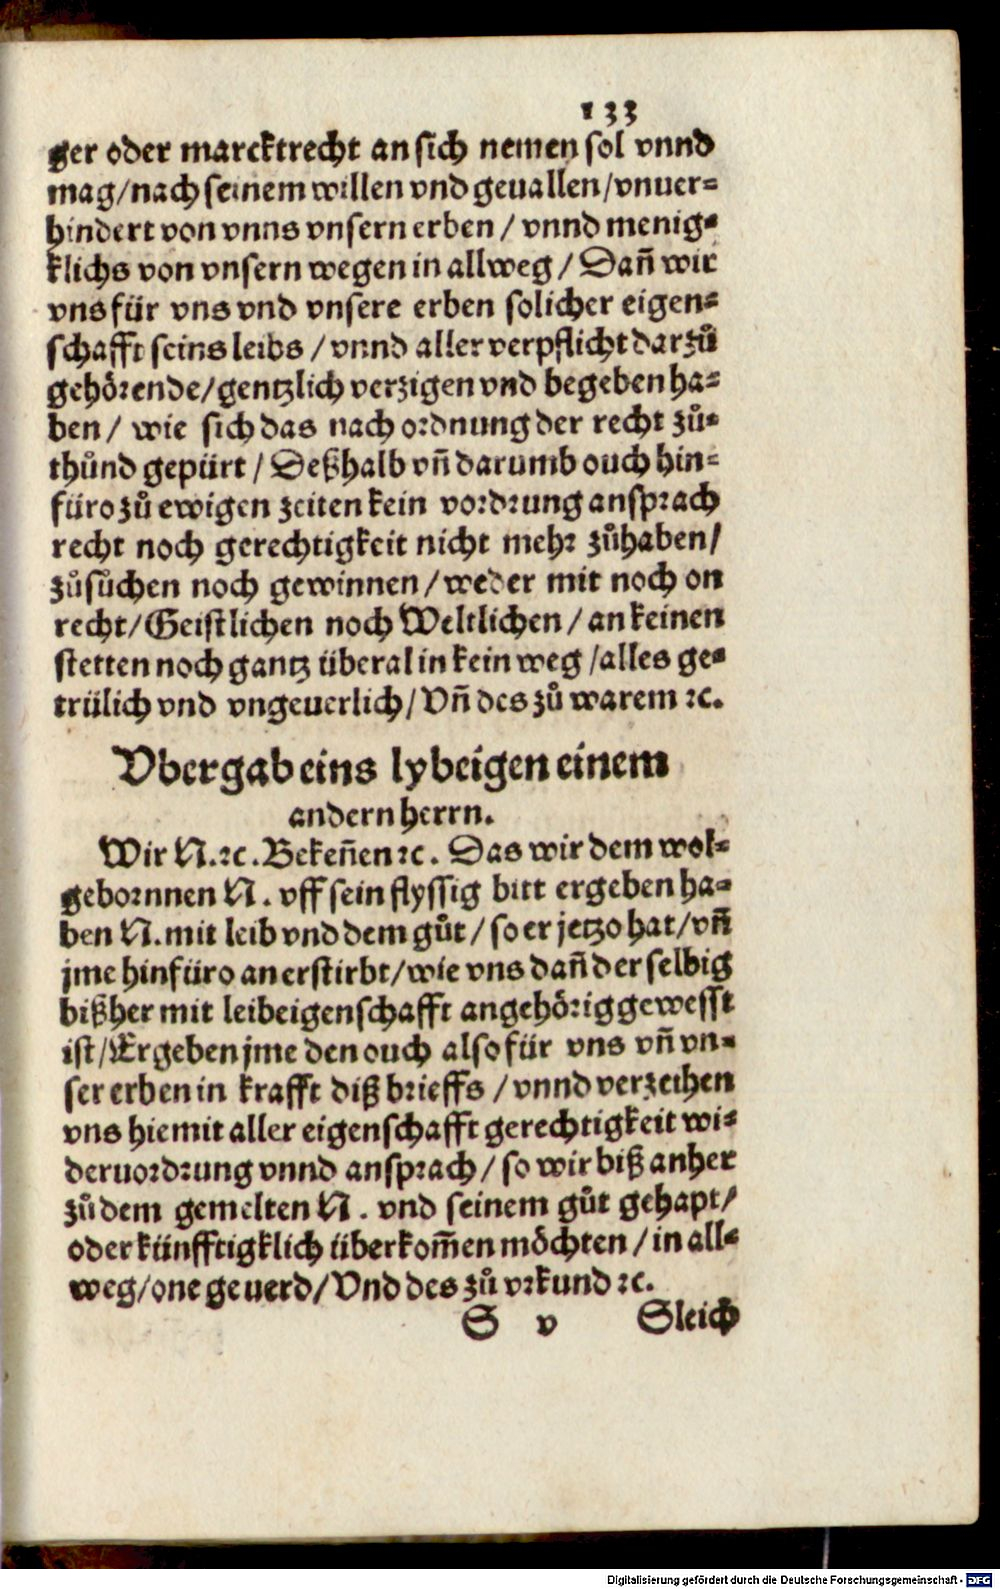 133
ger oder marcktrecht an sich nemen sol vnnd
mag/nach seinem willen vnd geuallen/vnuer⸗
hindert von vnns vnsern erben / vnnd menig⸗
klichs von vnsern wegen in allweg / Dañ wir
vns für vns vnd vnsere erben solicher eigen⸗
schafft seins leibs / vnnd aller verpflicht darzů
gehörende/gentzlich verzigen vnd begeben ha⸗
ben / wie sich das nach ordnung der recht zů⸗
thůnd gepürt / Deßhalb vñ darumb ouch hin⸗
füro zů ewigen zeiten kein vordrung ansprach
recht noch gerechtigkeit nicht mehr zůhaben/
zůsůchen noch gewinnen / weder mit noch on
recht/Geistlichen noch Weltlichen / an keinen
stetten noch gantz überal in kein weg /alles ge⸗
trülich vnd vngeuerlich/ Vñ des zů warem ꝛc.
Vbergab eins lybeigen einem
andern herrn.
Wir N.ꝛc.Bekeñen ꝛc. Das wir dem wol⸗
gebornnen N. vff sein flyssig bitt ergeben ha⸗
ben N.mit leib vnd dem gůt / so er jetzo hat/vñ
jme hinfüro an erstirbt/wie vns dañ der selbig
bißher mit leibeigenschafft angehörig gewesst
ist/Ergeben jme den ouch also für vns vñ vn⸗
ser erben in krafft diß brieffs / vnnd verzeihen
vns hiemit aller eigenschafft gerechtigkeit wi⸗
deruordrung vnnd ansprach / so wir biß anher
zů dem gemelten N. vnd seinem gůt gehapt/
oder künfftigklich überkom̃en möchten / in all⸗
weg/one geuerd/Vnd des zů vrkund ꝛc.
S v Gleich
Digitalisierung gefördert durch die Deutsche Forschungsgemeinschaft - DFG